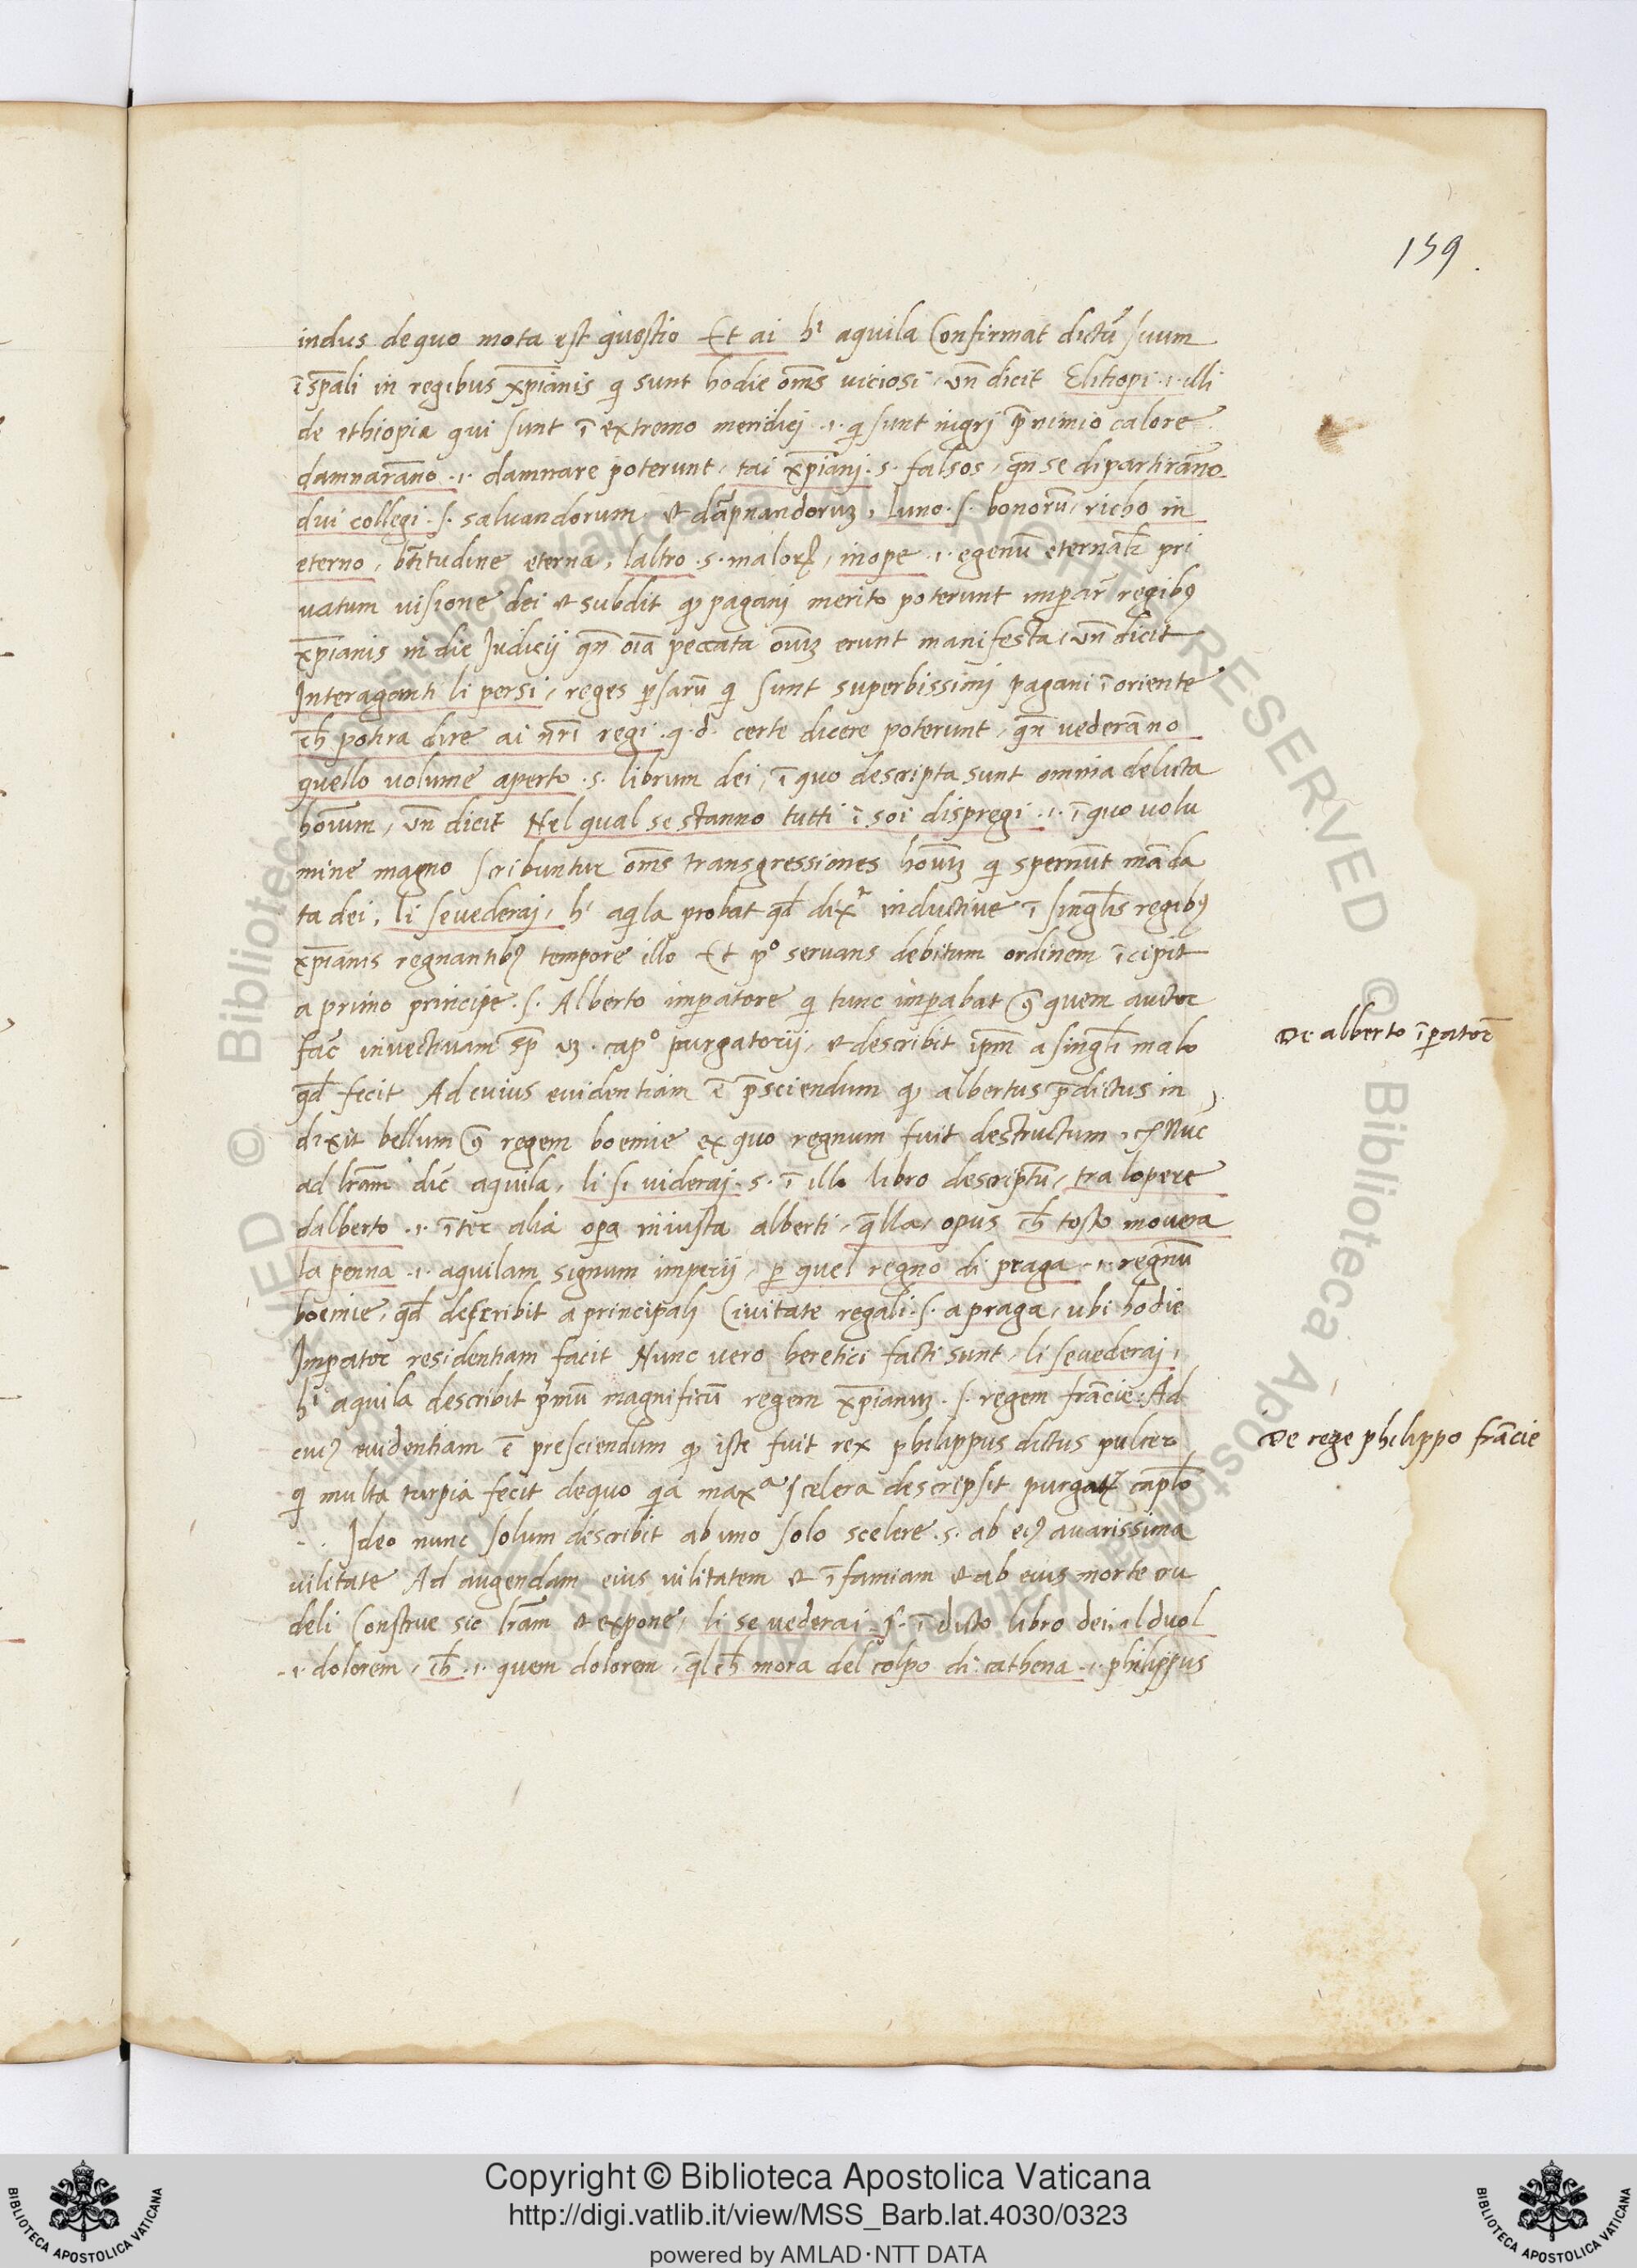 159.
indus de quo mota est questio Et ai hͥ aquila Confirmat dictũ suum
ĩ sp̃ali in regibus xp̃ianis q̇ sunt hodie om̃s viciosi, vñ dicit Elitiopi .i. illi
de ethiopia qui sunt ĩ extremo meridiei .i. q̇ sunt nigrj p̃ nimio calore
damnarãno .i. damnare poterunt, tai xp̃ianj .s. falsos, qñ se dipartirãno
dui collegi .s. saluandorum & dãpnandoruʒ, luno .s. bonorũ, richo in
eterno, bt̃itudine eterna, laltro .s. malorꝝ, inope .i. egenũ eternalr̃ pri
uatum visione dei & subdit ꝙ paganj merito poterunt improꝑar̃ regibꝰ
xp̃ianis in die Judicij qñ oĩa peccata oĩuʒ erunt manifesta, vñ dicit
Interaganti li persi, reges ꝑsarũ q̇ sunt superbissimj pagani ĩ oriente
ch̃ potira dire ai nr̃i regi .q.d. certe dicere poterunt, qñ vederãno
quello volume aperto .s. librum dei, ĩ quo descripta sunt omnia delicta
hoĩum, vñ dicit Nel qual se stanno tutti ĩ soi dispregi .i. ĩ quo volu
mine magno scribuntur om̃s transgressiones hoĩuʒ q̇ spernũt mãda
ta dei, li se vederaj, hͥ aq̇la probat qd̃ dixͭ inductiue ĩ singl̃is regibꝰ
xp̃ianis regnantibꝰ tempore illo Et pº seruans debitum ordinem ĩcipit
a primo principe .s. Alberto imꝑatore q̇ tunc imꝑabat ꝯ quem auctor
fac̃ inuectiuam sp̃ vʒ. capº purgatorij, & describit ip̃m a singl̃i malo
qd̃ fecit Ad cuius euidentiam ẽ p̃sciendum ꝙ albertus p̃dictus in
dixit bellum ꝯ regem boemie ex quo regnum fuit destructum, Nũc
ad lr̃am dic̃ aquila, li si viderai .s. ĩ illo libro descriptũ, tra lopere
dalberto .i. ĩter alia oꝑa iniusta alberti, q̃lla, opus ch̃ tosto mouera
la penna .i. aquilam signum imperij, ꝑ quel regno di praga .i. regnũ
boemie, qd̃ describit a principali Ciuitate regali .s. a praga, ubi hodie
Imꝑator residentiam facit Nunc vero heretici facti sunt, li se vederaj,
hͥ aquila describit pͥmũ magnificũ regem xp̃ianuʒ .s. regem frãcie. Ad
cuiꝰ euidentiam ẽ presciendum ꝙ iste fuit rex philippus dictus pulcer
q̇ multa turpia fecit de quo q̇a maxª scelera descripsit purgatͥ capl̃o
. . Ideo nunc solum describit ab uno solo scelere .s. ab eiꝰ auarissima
vilitate Ad augendam eius vilitatem & ĩfamiam & ab eius morte cru
deli Construe sic lr̃am & expone, li se vederai .s. ĩ dicto libro dei, il duol
.i. dolorem, ch̃ .i. quem dolorem, q̃l ch̃ mora del colpo di cathena .i. philippus
De alberto ĩꝑatore
De rege philippo frãcie
Copyright © Biblioteca Apostolica Vaticana
http://digi.vatlib.it/view/MSS_Barb.lat.4030/0323
powered by AMLAD·NTT DATA
BIBLIOTECA APOSTOLICA VATICANA
BIBLIOTECA APOSTOLICA VATICANA